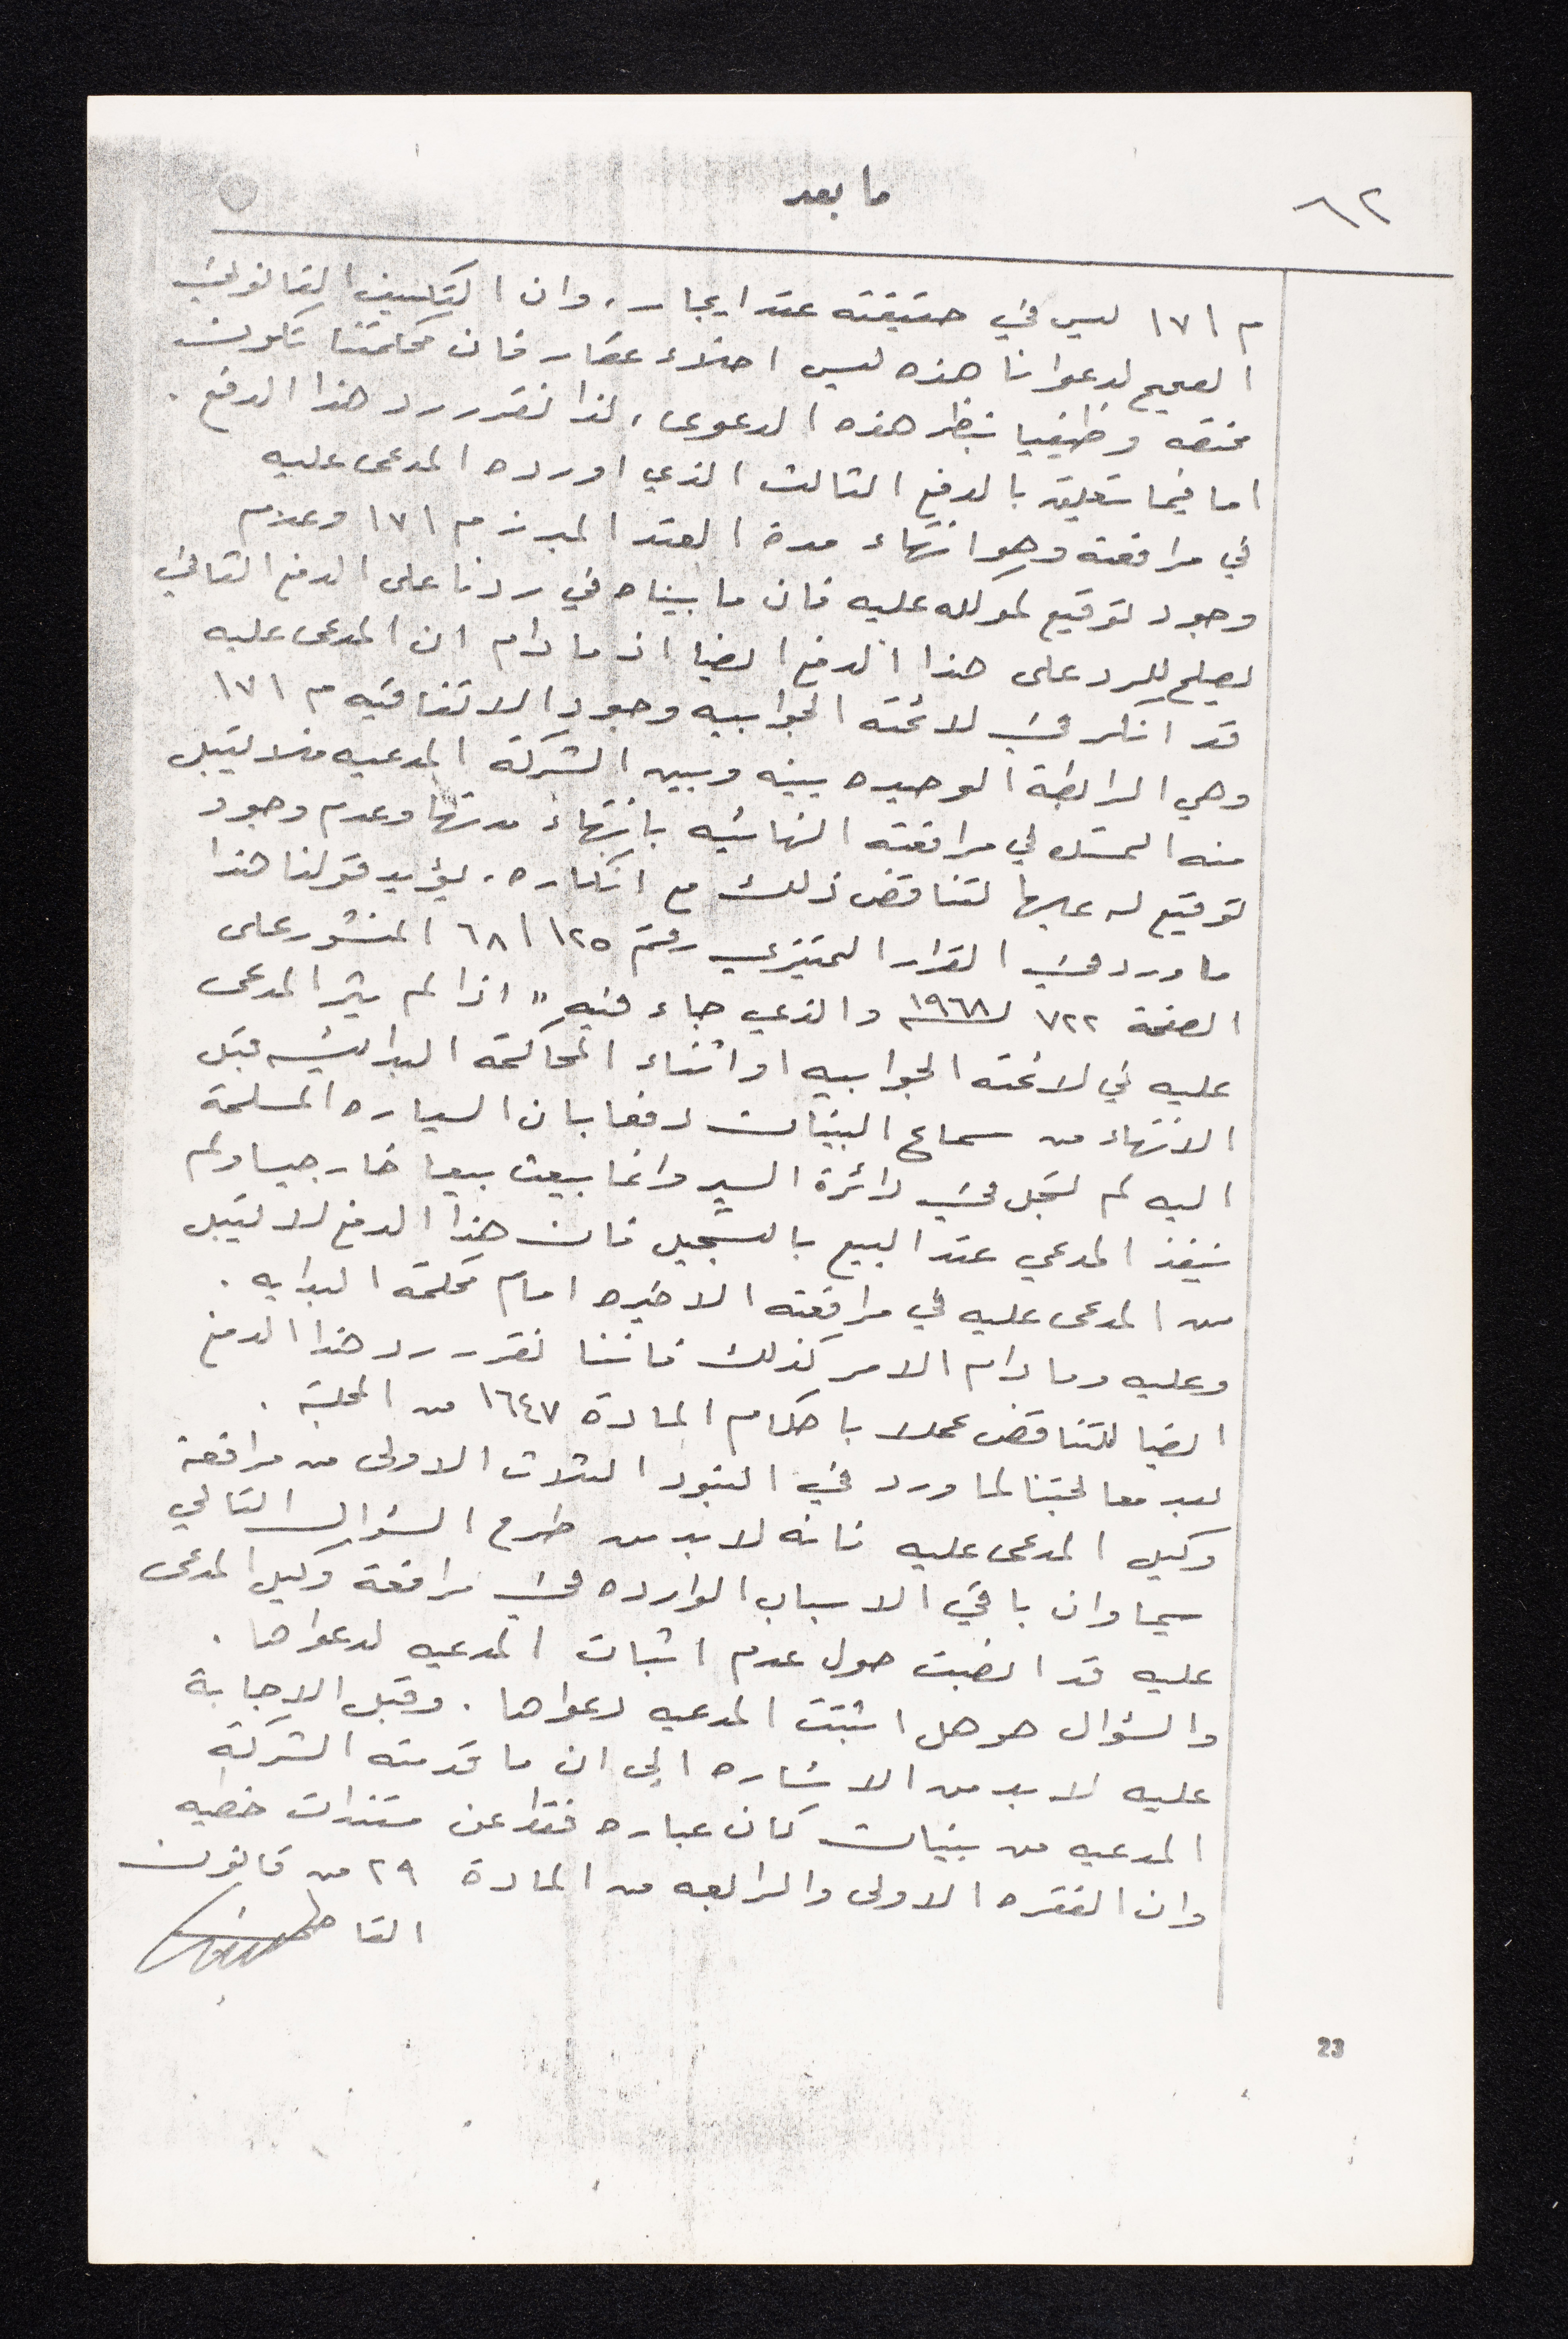 ٦٢
ما بعد
م ١٧١ ليس في حقيقته عقد ايجار، وان التكييف القانوني
الصحيح لدعوانا هذه ليس اخلاء عقار فان محكمتنا تكون
مختصه وظيفيا بنظر هذه الدعوى، لذا نقرر رد هذا الدفع .
اما فيما يتعلق بالدفع الثالث الذي اورده المدعى عليه
في مرافعته وهو انتهاء مدة العقد المبرز م ١٧١ وعدم
وجود توقيع لموكله عليه فان ما بيناه في ردنا على الدفع الثاني
يصلح للرد على هذا الدفع ايضا اذ ما دام ان المدعى عليه
قد انكر في لائحته الجوابيه وجود الاتفاقيه م ١٧١
وهي الرابطة الوحيده بينه وبين الشركة المدعيه فلا يقبل
منه التمسك في مرافعته النهائيه بانتهاء مدتها وعدم وجود
توقيع له عليها لتناقض ذلك مع انكاره. يؤيد قولنا هذا
ما ورد في القرار التمييزي رقم ١٢٥ / ٦٨ المنشور على
الصفحة ٧٢٢ لسنة ١٩٦٨ والذي جاء فيه " اذا لم يثر المدعى
عليه في لائحته الجوابيه او اثناء المحاكمة البدائيه قبل
الانتهاء من سماع البينات دفعا بان السياره المسلمة
اليه لم تسجل في دائرة السير وانما بيعت بيعا خارجيا ولم
ينفذ المدعي عقد البيع بالتسجيل فان هذا الدفع لا يقبل
من المدعى عليه في مرافعته الاخيره امام محكمة البدايه .
وعليه وما دام الامر كذلك فاننا نقرر رد هذا الدفع
ايضا للتناقض عملا باحكام المادة ١٦٤٧ من المجلة .
بعد معالجتنا لما ورد في البنود الثلاث الاولى من مرافعة
وكيل المدعى عليه فانه لا بد من طرح السؤال التالي
سيما وان باقي الاسباب الوارده في مرافعة وكيل المدعى
عليه قد انصبت حول عدم اثبات المدعيه لدعواها .
والسؤال هو هل اثبتت المدعيه دعواها . وقبل الاجابة
عليه لا بد من الاشاره الى ان ما قدمته الشركة
المدعيه من بينات كان عباره فقط عن مستندات خطيه
وان الفقره الاولى والرابعه من المادة ٢٩ من قانون
القاضي
23